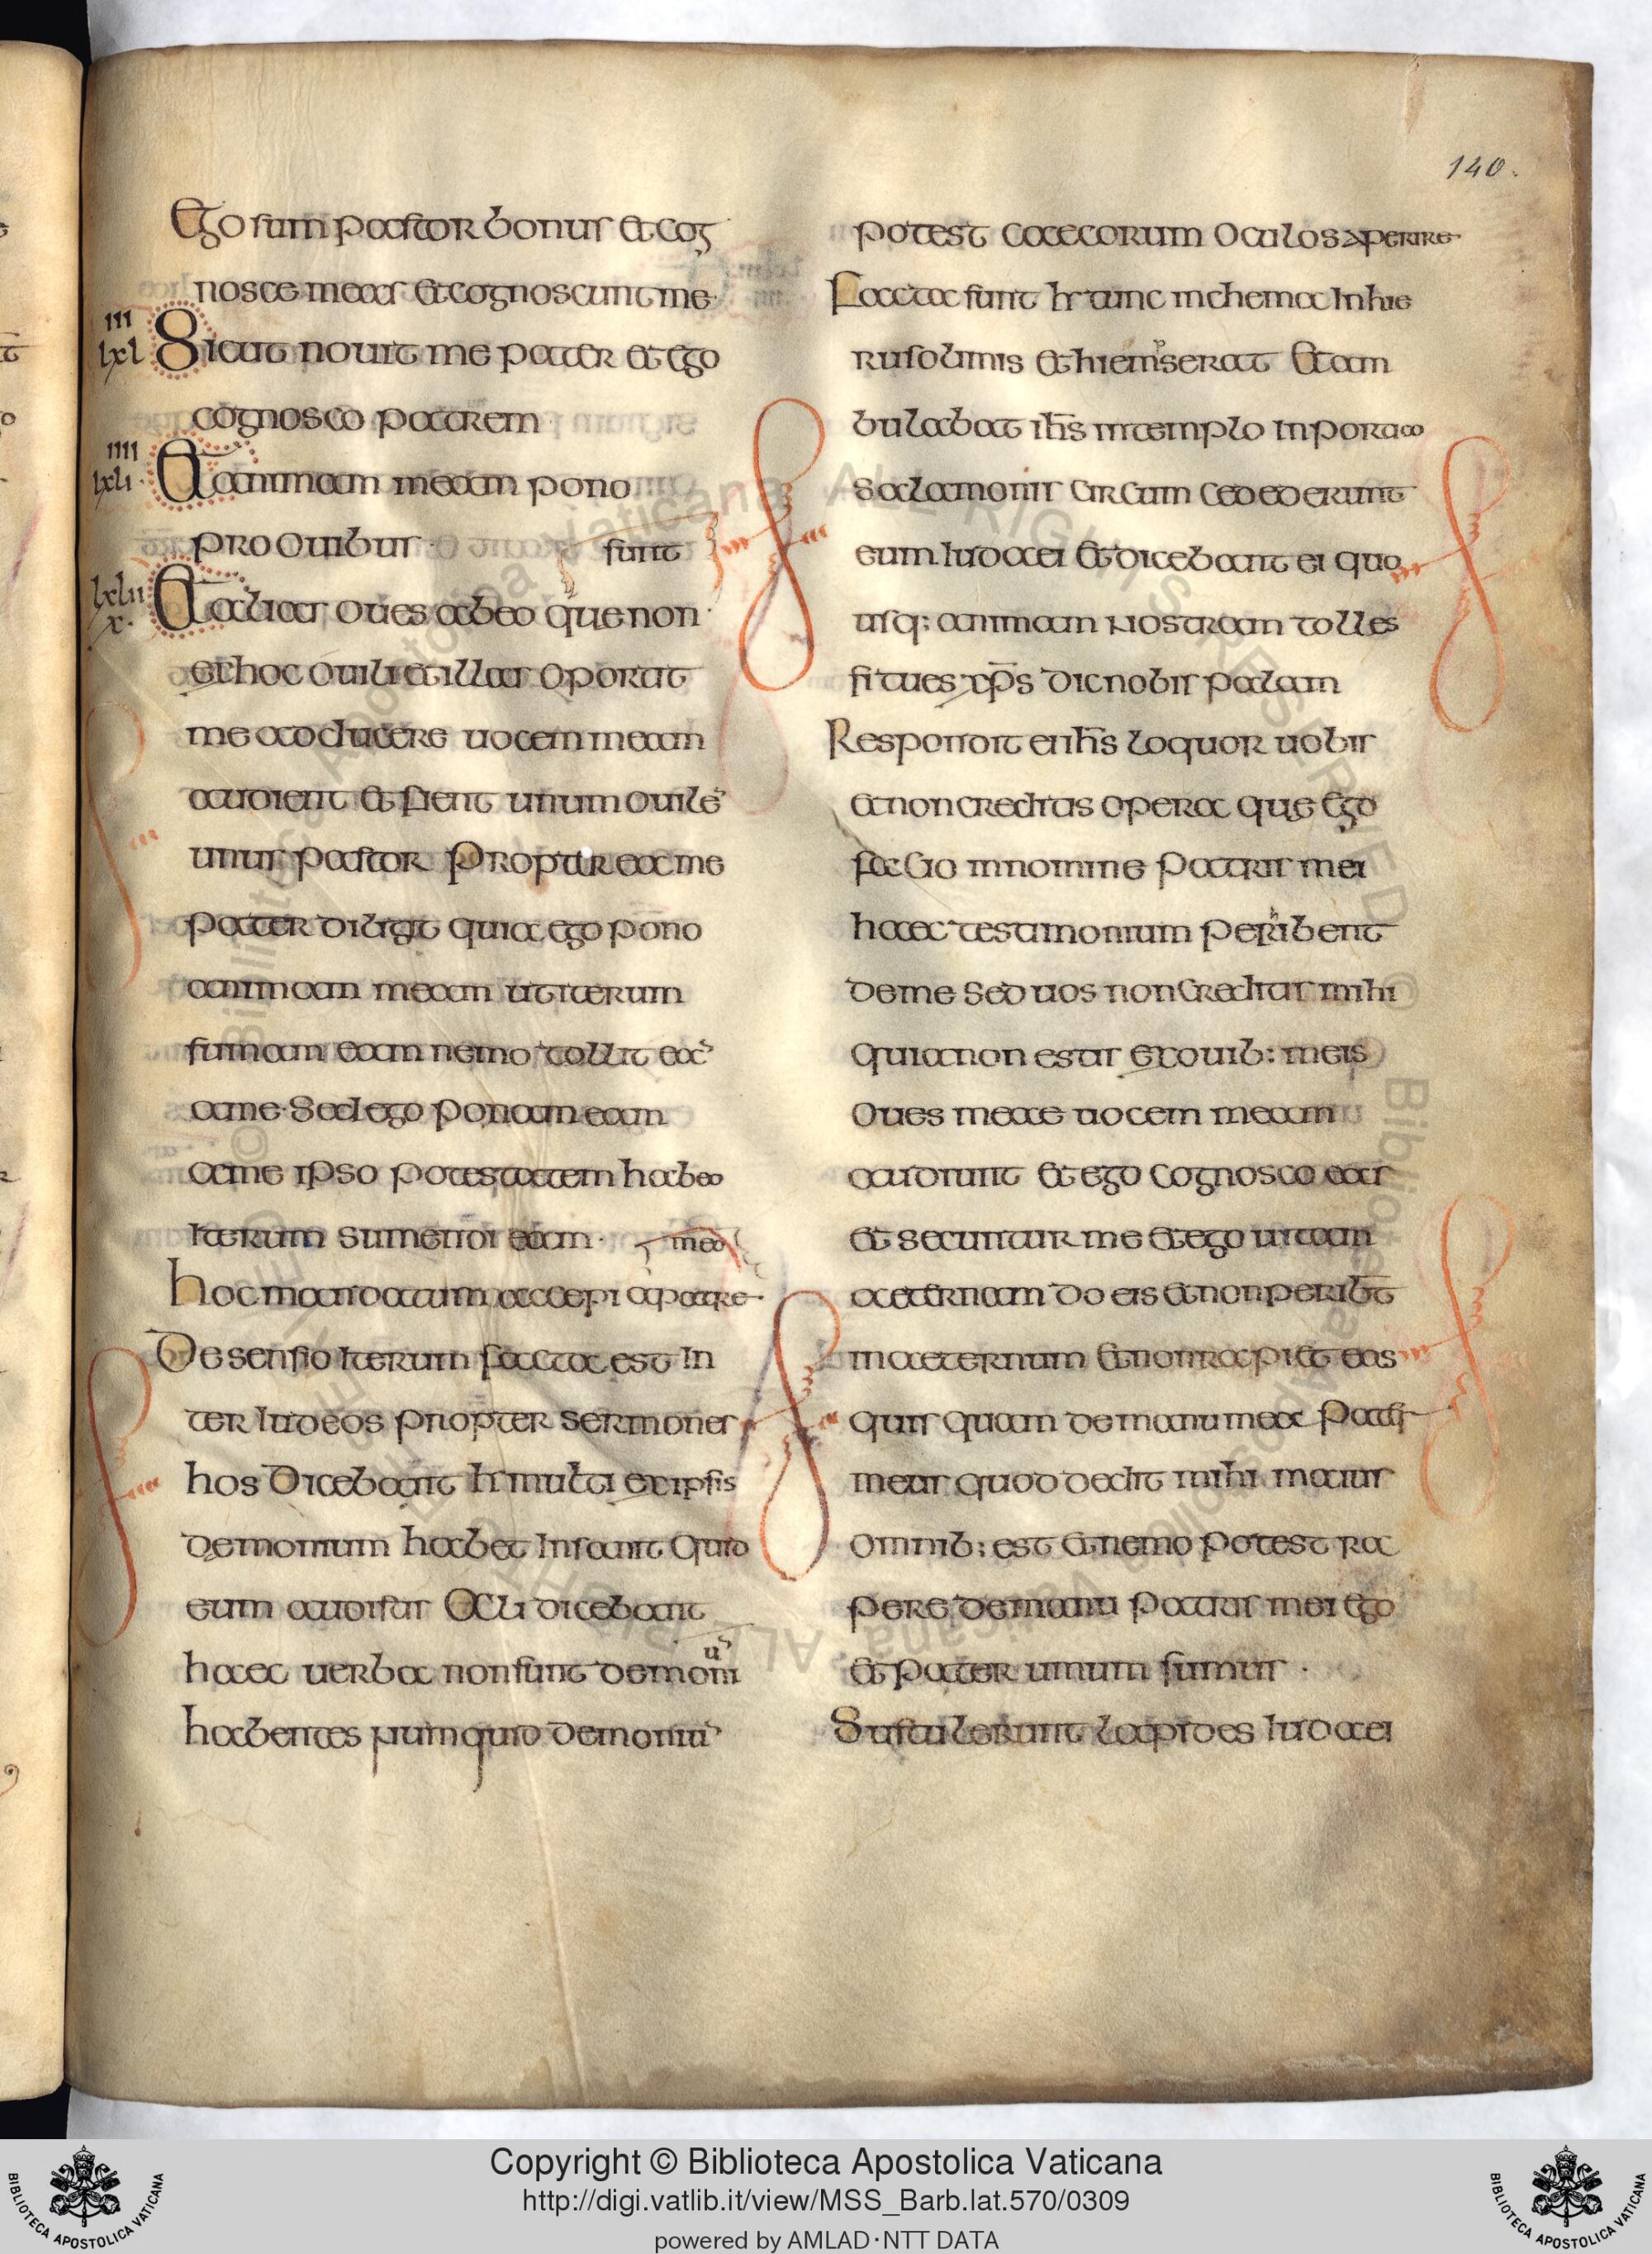 140.
Ego sum pastor bonus et cog
nosce meas et cognoscunt me
III
lxl
Sicut nouit me pater et ego
cognosco patrem
IIII
lxli
Et animam meam pono
pro ouibus
sunt
lxlii
x.
Et alias oues abeo que non
ex hoc ouili et illas oportet
me adducere uocem meam
audient et fient unum ouile
unus pastor Propter ea me
pater diligit quia ego pono
animam meam ut iterum
sumam eam nemo tollit ea
a me Sed ego ponam eam
a me ipso potestatem habeo
Iterum sumendi eam
meo
hoc mandatum accepi a patre
Desensio iterum facta est In
ter Iudeos propter sermones
hos Dicebant h multi ex ipsis
demonium habet Insanit Quid
eum auditis Ali dicebant
haec uerba non sunt demoni
habentes numquid demoniu
potest caecorum oculos aperire
Facta sunt h tunc inchema In hie
rusolimis et hiemserat Et am
bulabat ihs in templo In portico
salamonis Circum cedederunt
eum Iudaei Et dicebant ei quo
usq; animam nostram tolles
si tu es xps dic nobis palam
Respondit ei ihs loquor uobis
et non creditis opera que Ego
facio in nomine patris mei
haec testimonium peribent
de me Sed uos non Creditis mihi
Quia non estis ex ouib: meis
Oues meae uocem meam
audiunt Et ego Cognosco eas
et secuntur me Et ego uitam
aeternam Do eis et non peribt
in aeternum Et non rapiet eos
quis quam de manu mea Pat
meus quod dedit mihi maius
omnib; est Et nemo potest ra
pere de manu Patris mei Ego
et pater unum sumus
Sustulerunt lapides Iudaei
Copyright © Biblioteca Apostolica Vaticana
http://digi.vatlib.it/view/MSS_Barb.lat.570/0309
powered by AMLAD·NTT DATA
BIBLIOTECA APOSTOLICA VATICANA
BIBLIOTECA APOSTOLICA VATICANA